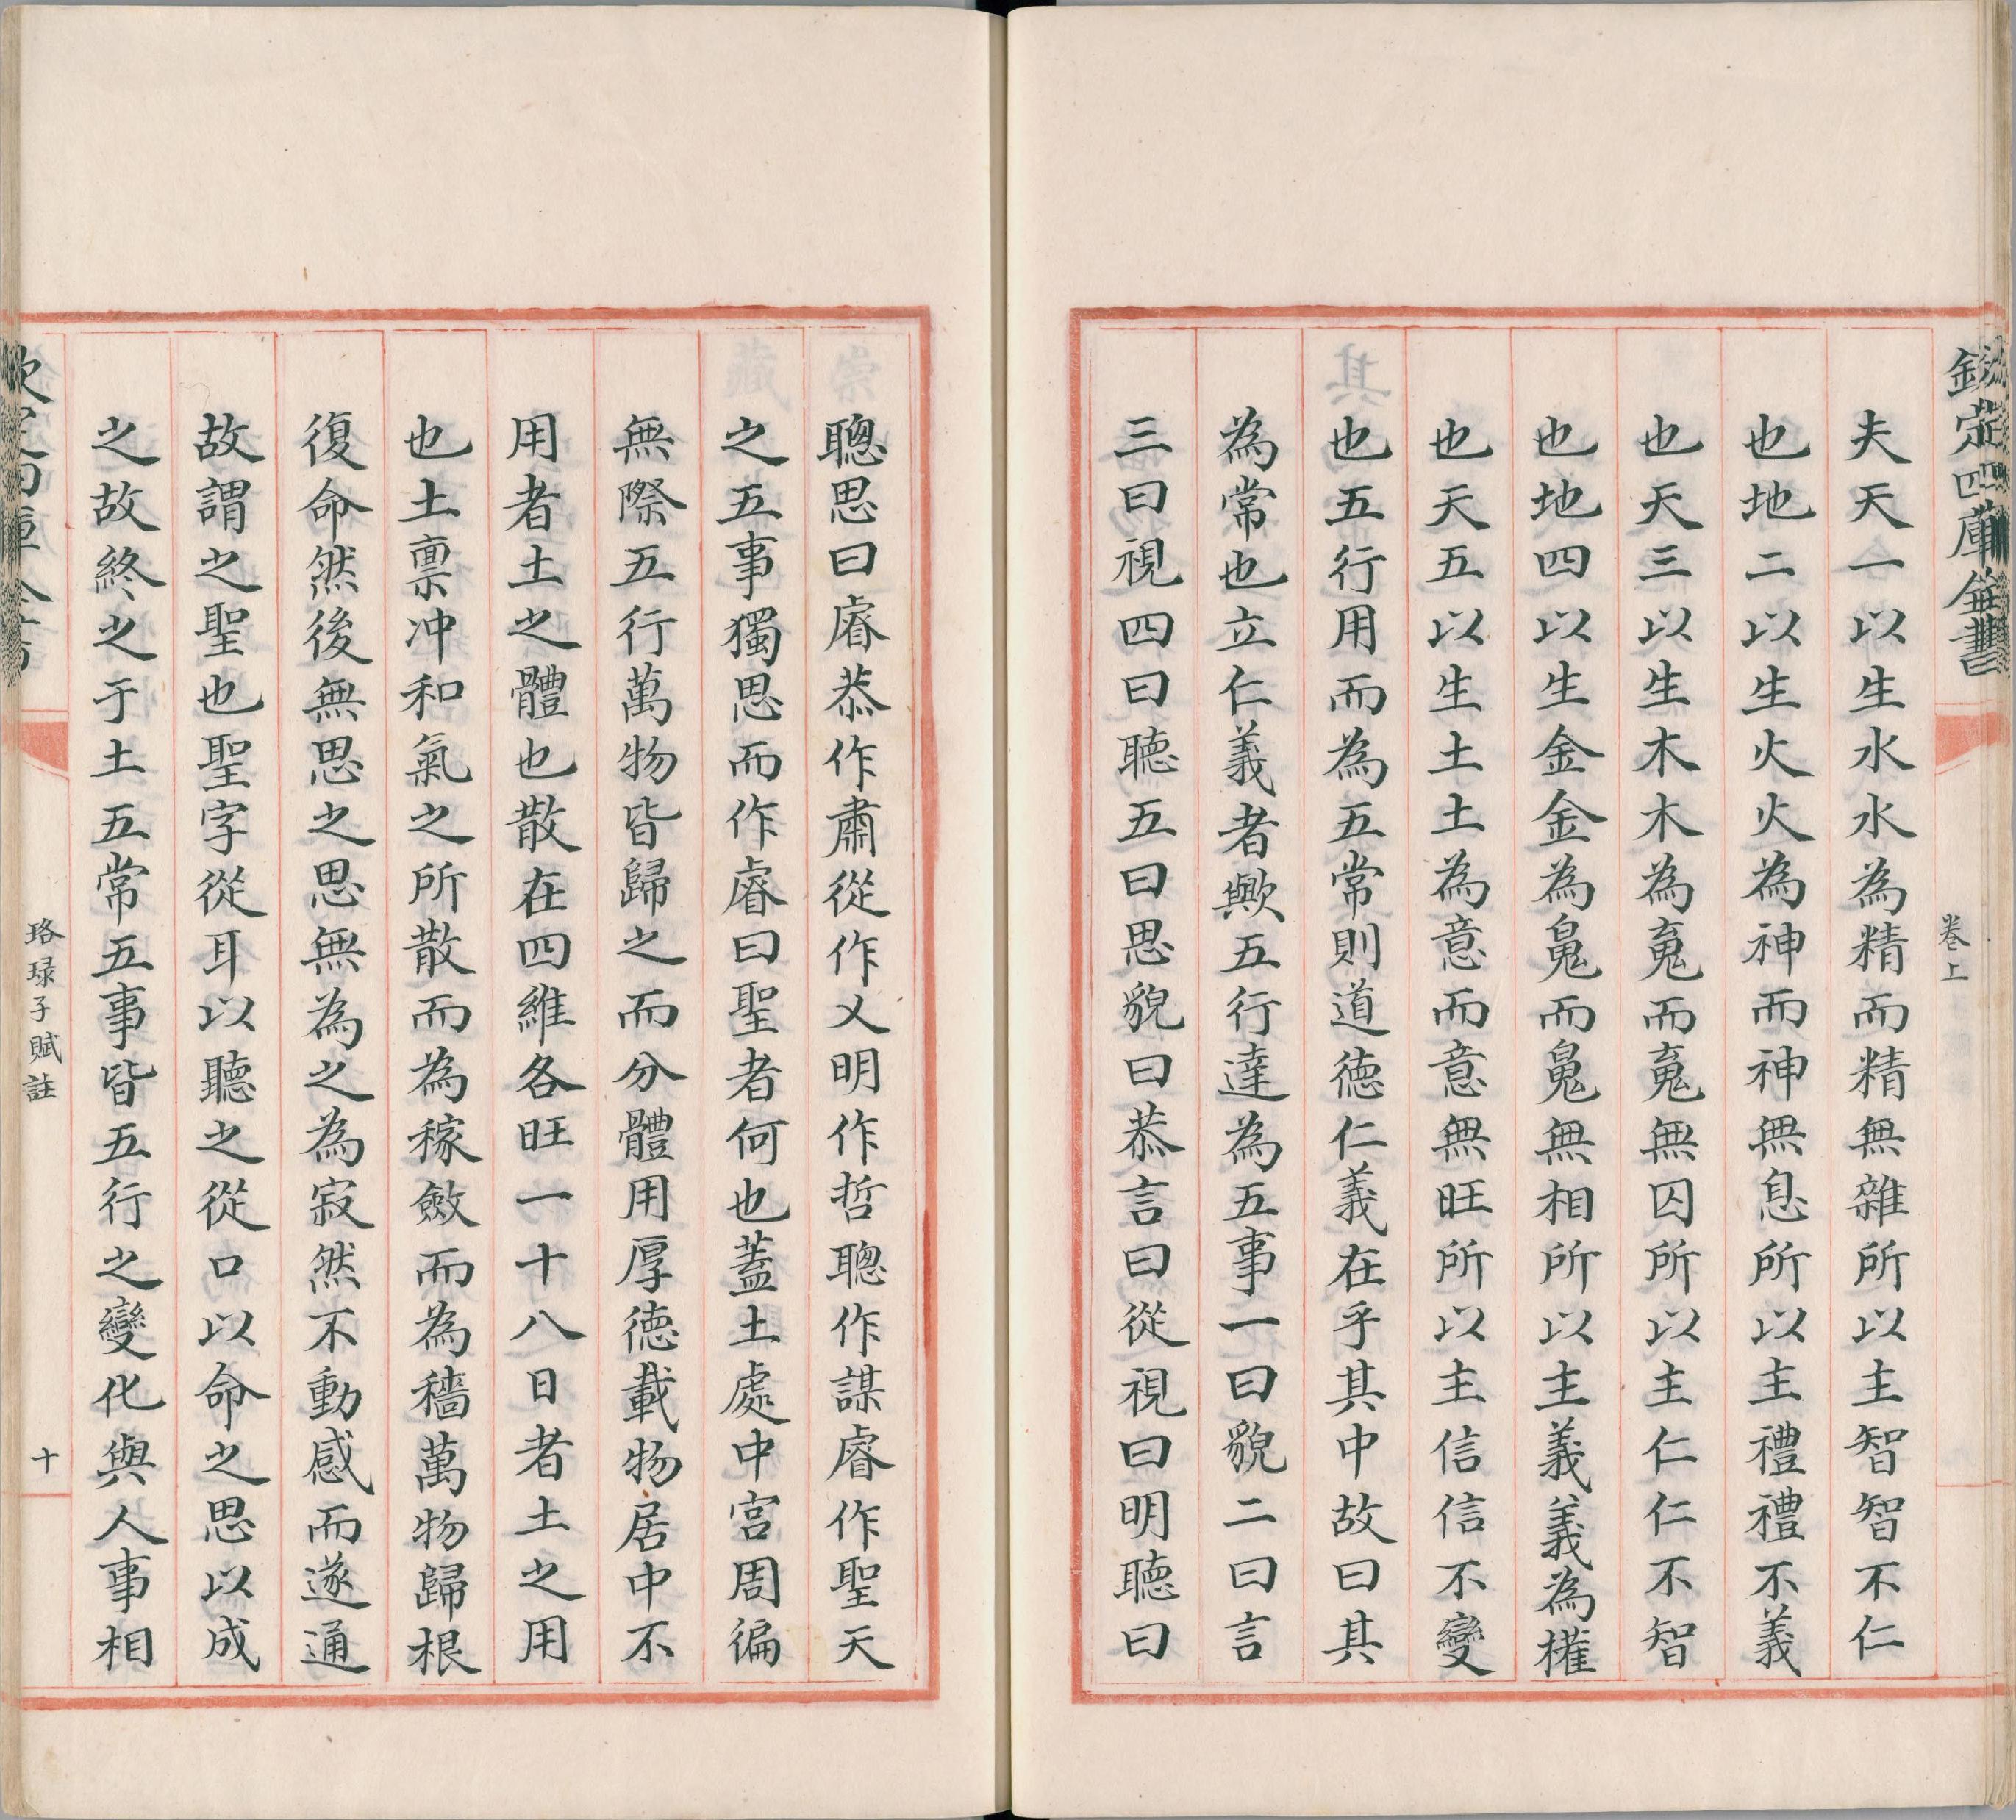 欽定四庫全書
卷上
夫天一以生水水為精而精無雜所以主智智不仁
也地二以生火火為神而神無息所以主禮禮不義
也天三以生木木為䰟而䰟無囚所以主仁仁不智
也地四以生金金為鬽而鬽無相所以主義義為權
也天五以生土土為意而意無旺所以主信信不變
也五行用而為五常則道徳仁義在乎其中故曰其
為常也立仁義者歟五行達為五事一曰貌二曰言
三曰視四曰聴五曰思貌曰恭言曰從視曰明聴曰
聰思曰睿恭作肅從作乂明作哲聰作謀睿作聖天
之五事獨思而作睿曰聖者何也蓋土處中宮周徧
無際五行萬物皆歸之而分體用厚徳載物居中不
用者土之體也散在四維各旺一十八日者土之用
也土禀冲和氣之所散而為稼斂而為穡萬物歸根
復命然後無思之思無為之為寂然不動感而遂通
故謂之聖也聖字從耳以聽之從口以命之思以成
之故終之于土五常五事皆五行之變化與人事相
珞琭子賦註
十